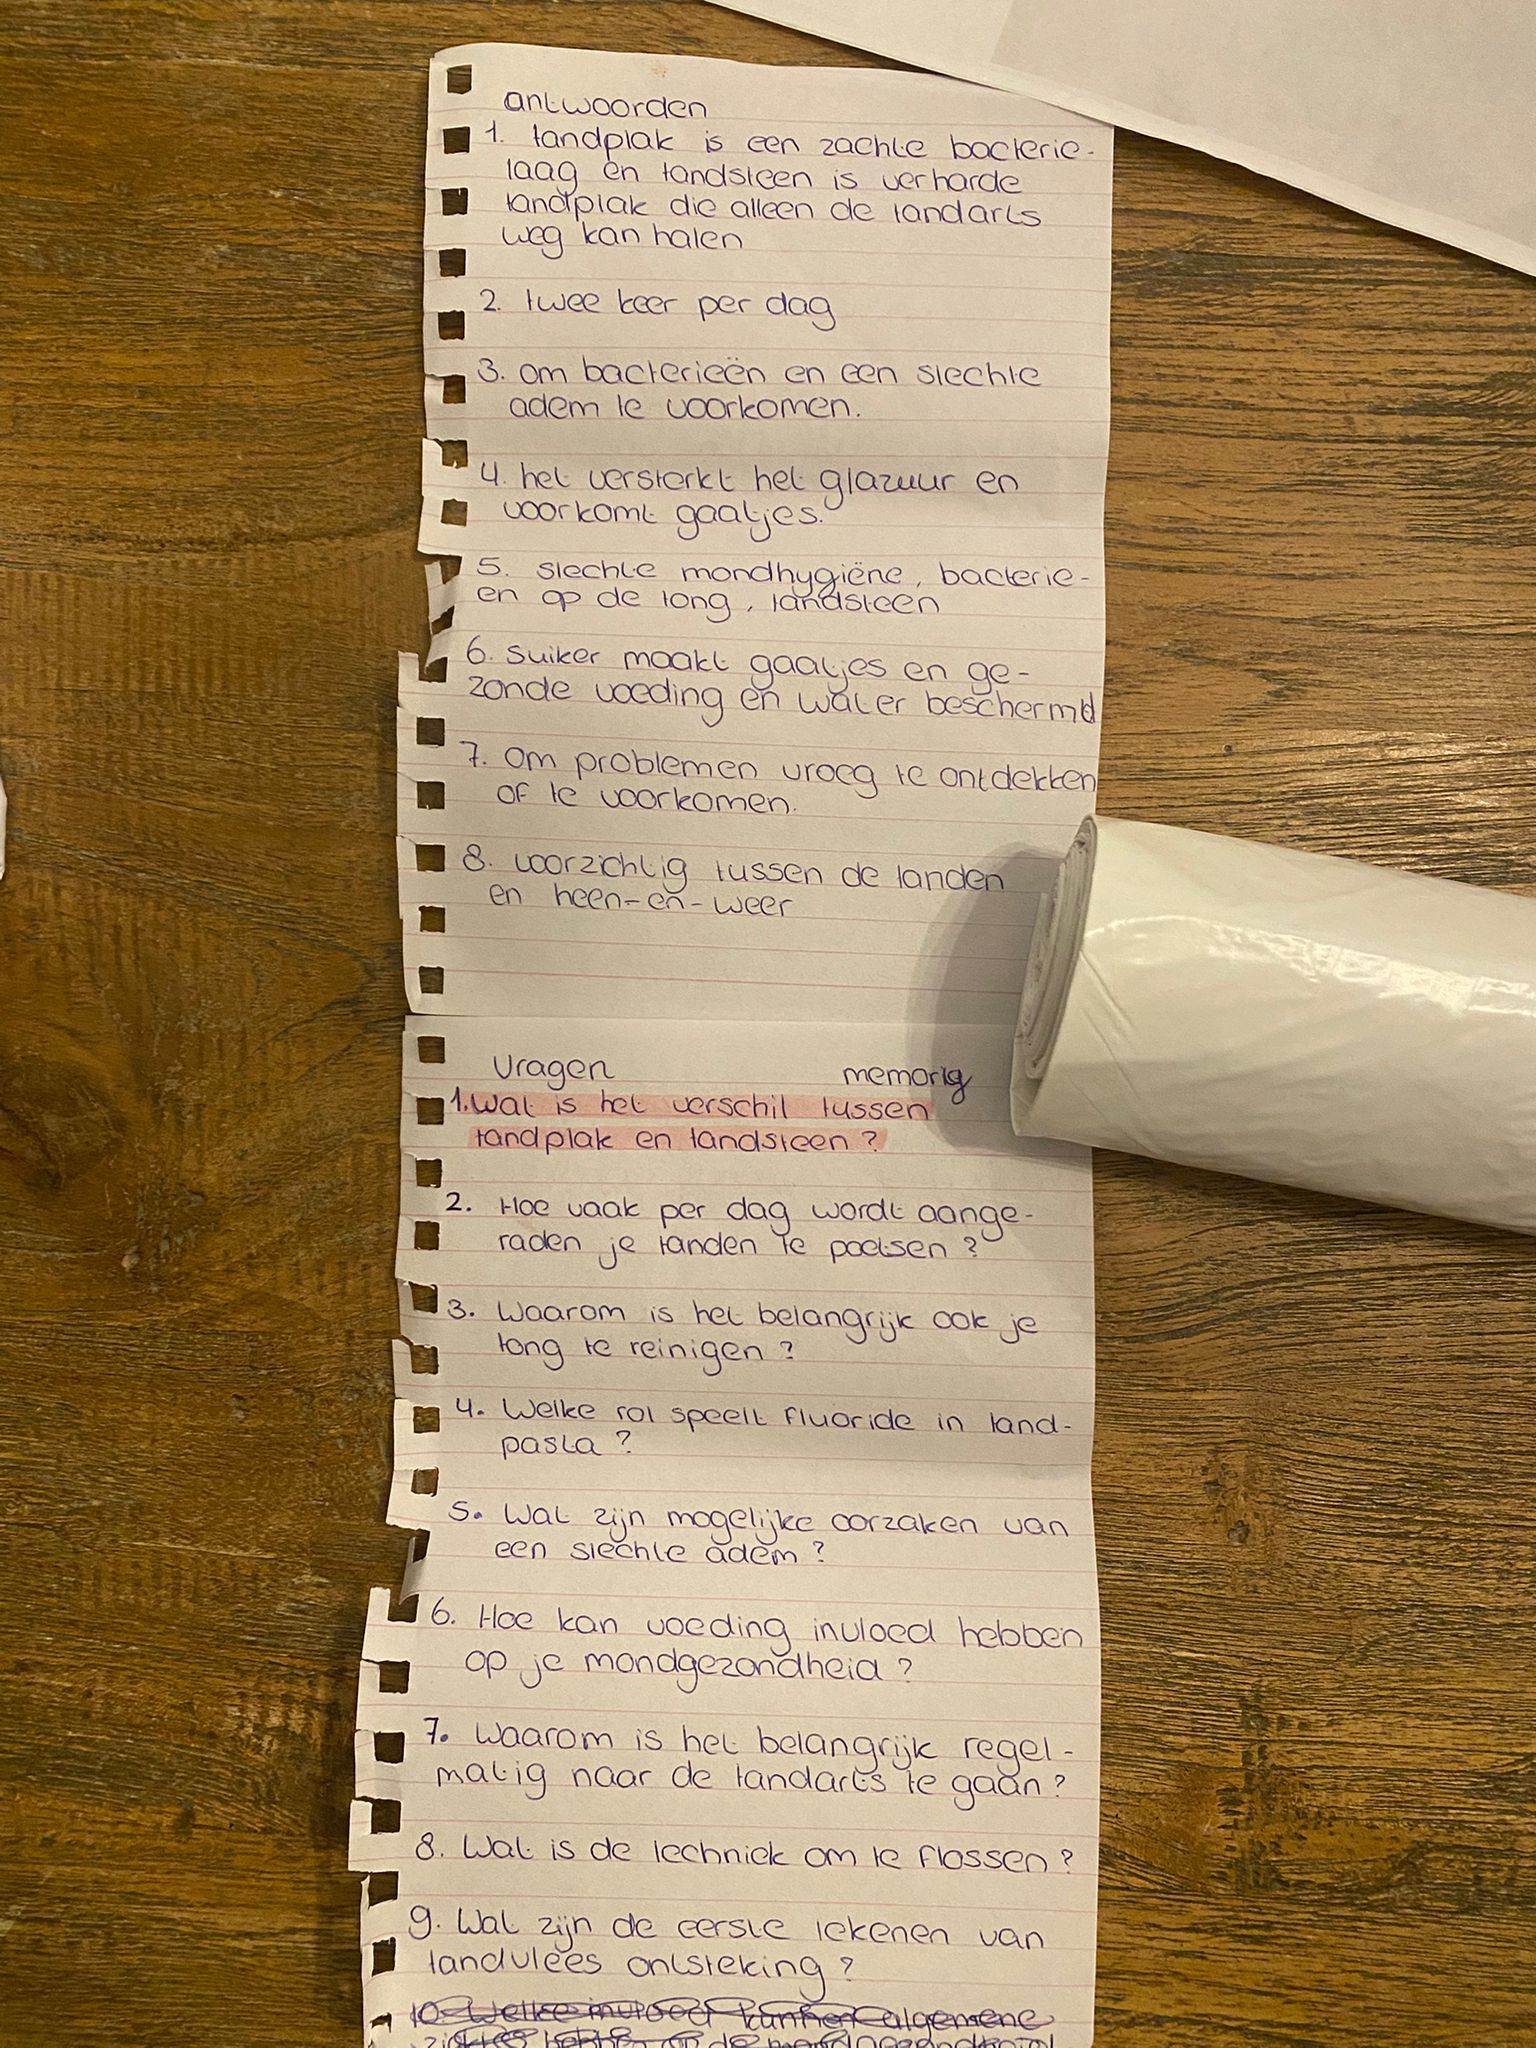 antwoorden
1. tandplak is een zachte bacterie-
laag en tandsteen is verharde
tandplak die alleen de tandarts
weg kan halen
2. twee keer per dag
3. om bacterieën en een slechte
adem te voorkomen.
4. het versterkt het glazuur en
voorkomt gaatjes.
5. slechte mondhygiëne, bacterie-
en op de tong, tandsteen
6. suiker maakt gaatjes en ge-
zonde voeding en water beschermd
7. om problemen vroeg te ontdekken
of te voorkomen.
8. voorzichtig tussen de tanden
en heen-en-weer
vragen memorig
1. Wat is het verschil tussen
tandplak en tandsteen?
2. Hoe vaak per dag wordt aange-
raden je tanden te poetsen?
3. Waarom is het belangrijk ook je
tong te reinigen?
4. Welke rol speelt fluoride in tand-
pasta?
5. Wat zijn mogelijke oorzaken van
een slechte adem?
6. Hoe kan voeding invloed hebben
op je mondgezondheid?
7. Waarom is het belangrijk regel-
matig naar de tandarts te gaan?
8. Wat is de techniek om te flossen?
9. Wat zijn de eerste tekenen van
tandvlees ontsteking?
10. Welke invloed kunnen algemene